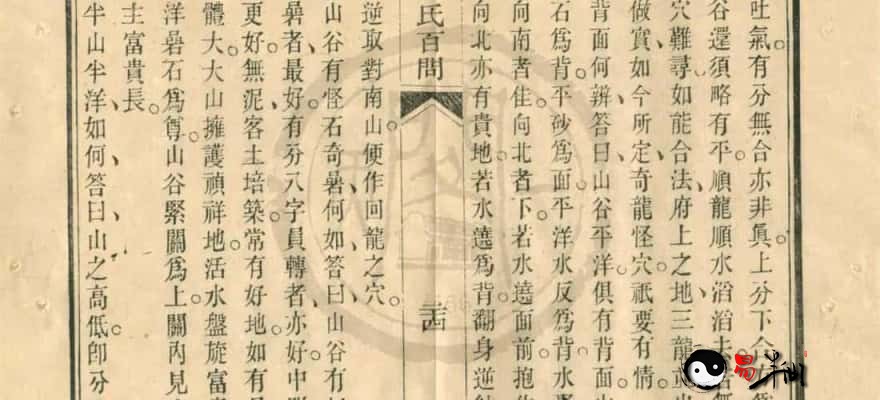 吐氣。有分無合亦非眞。上分下合
谷還須略有平。順龍順水滔滔去。
穴難尋。如能合法府上之地三龍
做實。如今所定奇龍怪穴。祇要有情。
背面何辨。答曰山谷平洋。俱有背面。
石爲背。平砂爲面。平洋水反爲背。水
向南者佳。向北者下。若水遶面前抱
向北亦有貴地。若水遶爲背。翻身逆
氏百問
三西
逆取對南山。便作回龍之穴。
山谷有怪石奇㬓何如。答曰山谷有
㬓者最好。有分八字員轉者亦好。中
更好。無泥。客土培築。常有好地。如有
體大。大山擁護禎祥地。活水盤旋富
洋㬓石爲尊。山谷緊關爲上。關內見
主富貴長。
半山半洋。如何。答曰山之高低。卽分
易